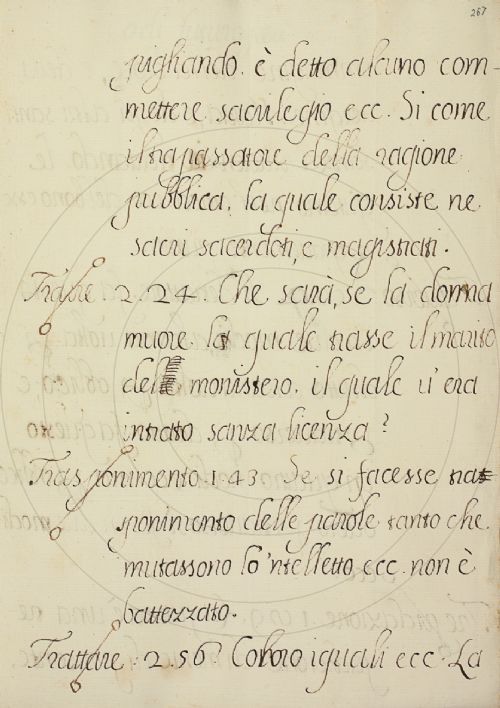 267
pigliando. è detto alcuno com-
mettere sacrilegio ecc. Si come
il trapassatore della ragione
pubblica, la quale consiste ne
sacri sacerdoti, e magistrati.
Trarre. 2. 24. Che sarà, se la donna
muore. la quale trasse il marito
del monistero. il quale v'era
intrato sanza licenza?
Trasponimento. 143. Se si facesse tras
ponimento delle parole tanto che
mutassono lo 'ntelletto ecc. non è
battezzato.
Trattare. 2. 56. Coloro iguali ecc. La